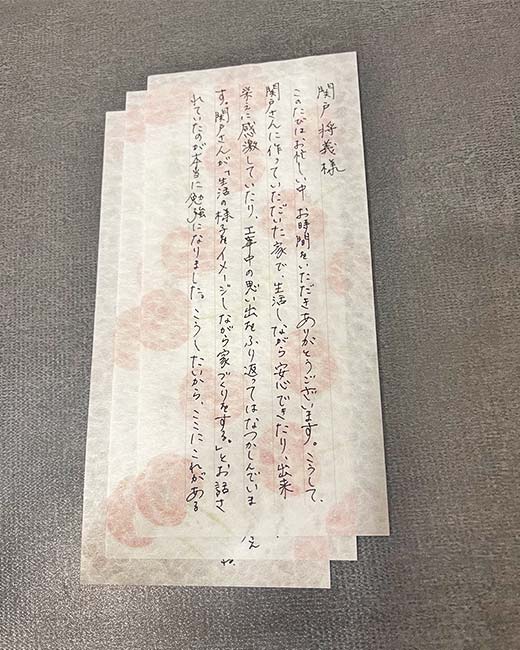 関戸将義様
このたびはお忙しい中 お時間をいただきありがとうございます。こうして、
関戸さんに作っていただいた家で、生活しながら安心できたり、出来
栄えに感激していたり、工事中の思い出をふり返ってはなつかしんでいま
す。関戸さんが、「生活の様子をイメージしながら家づくりをする。」とお話さ
れていたのが本当に勉強になりました。こうしたいから、ここにこれがある